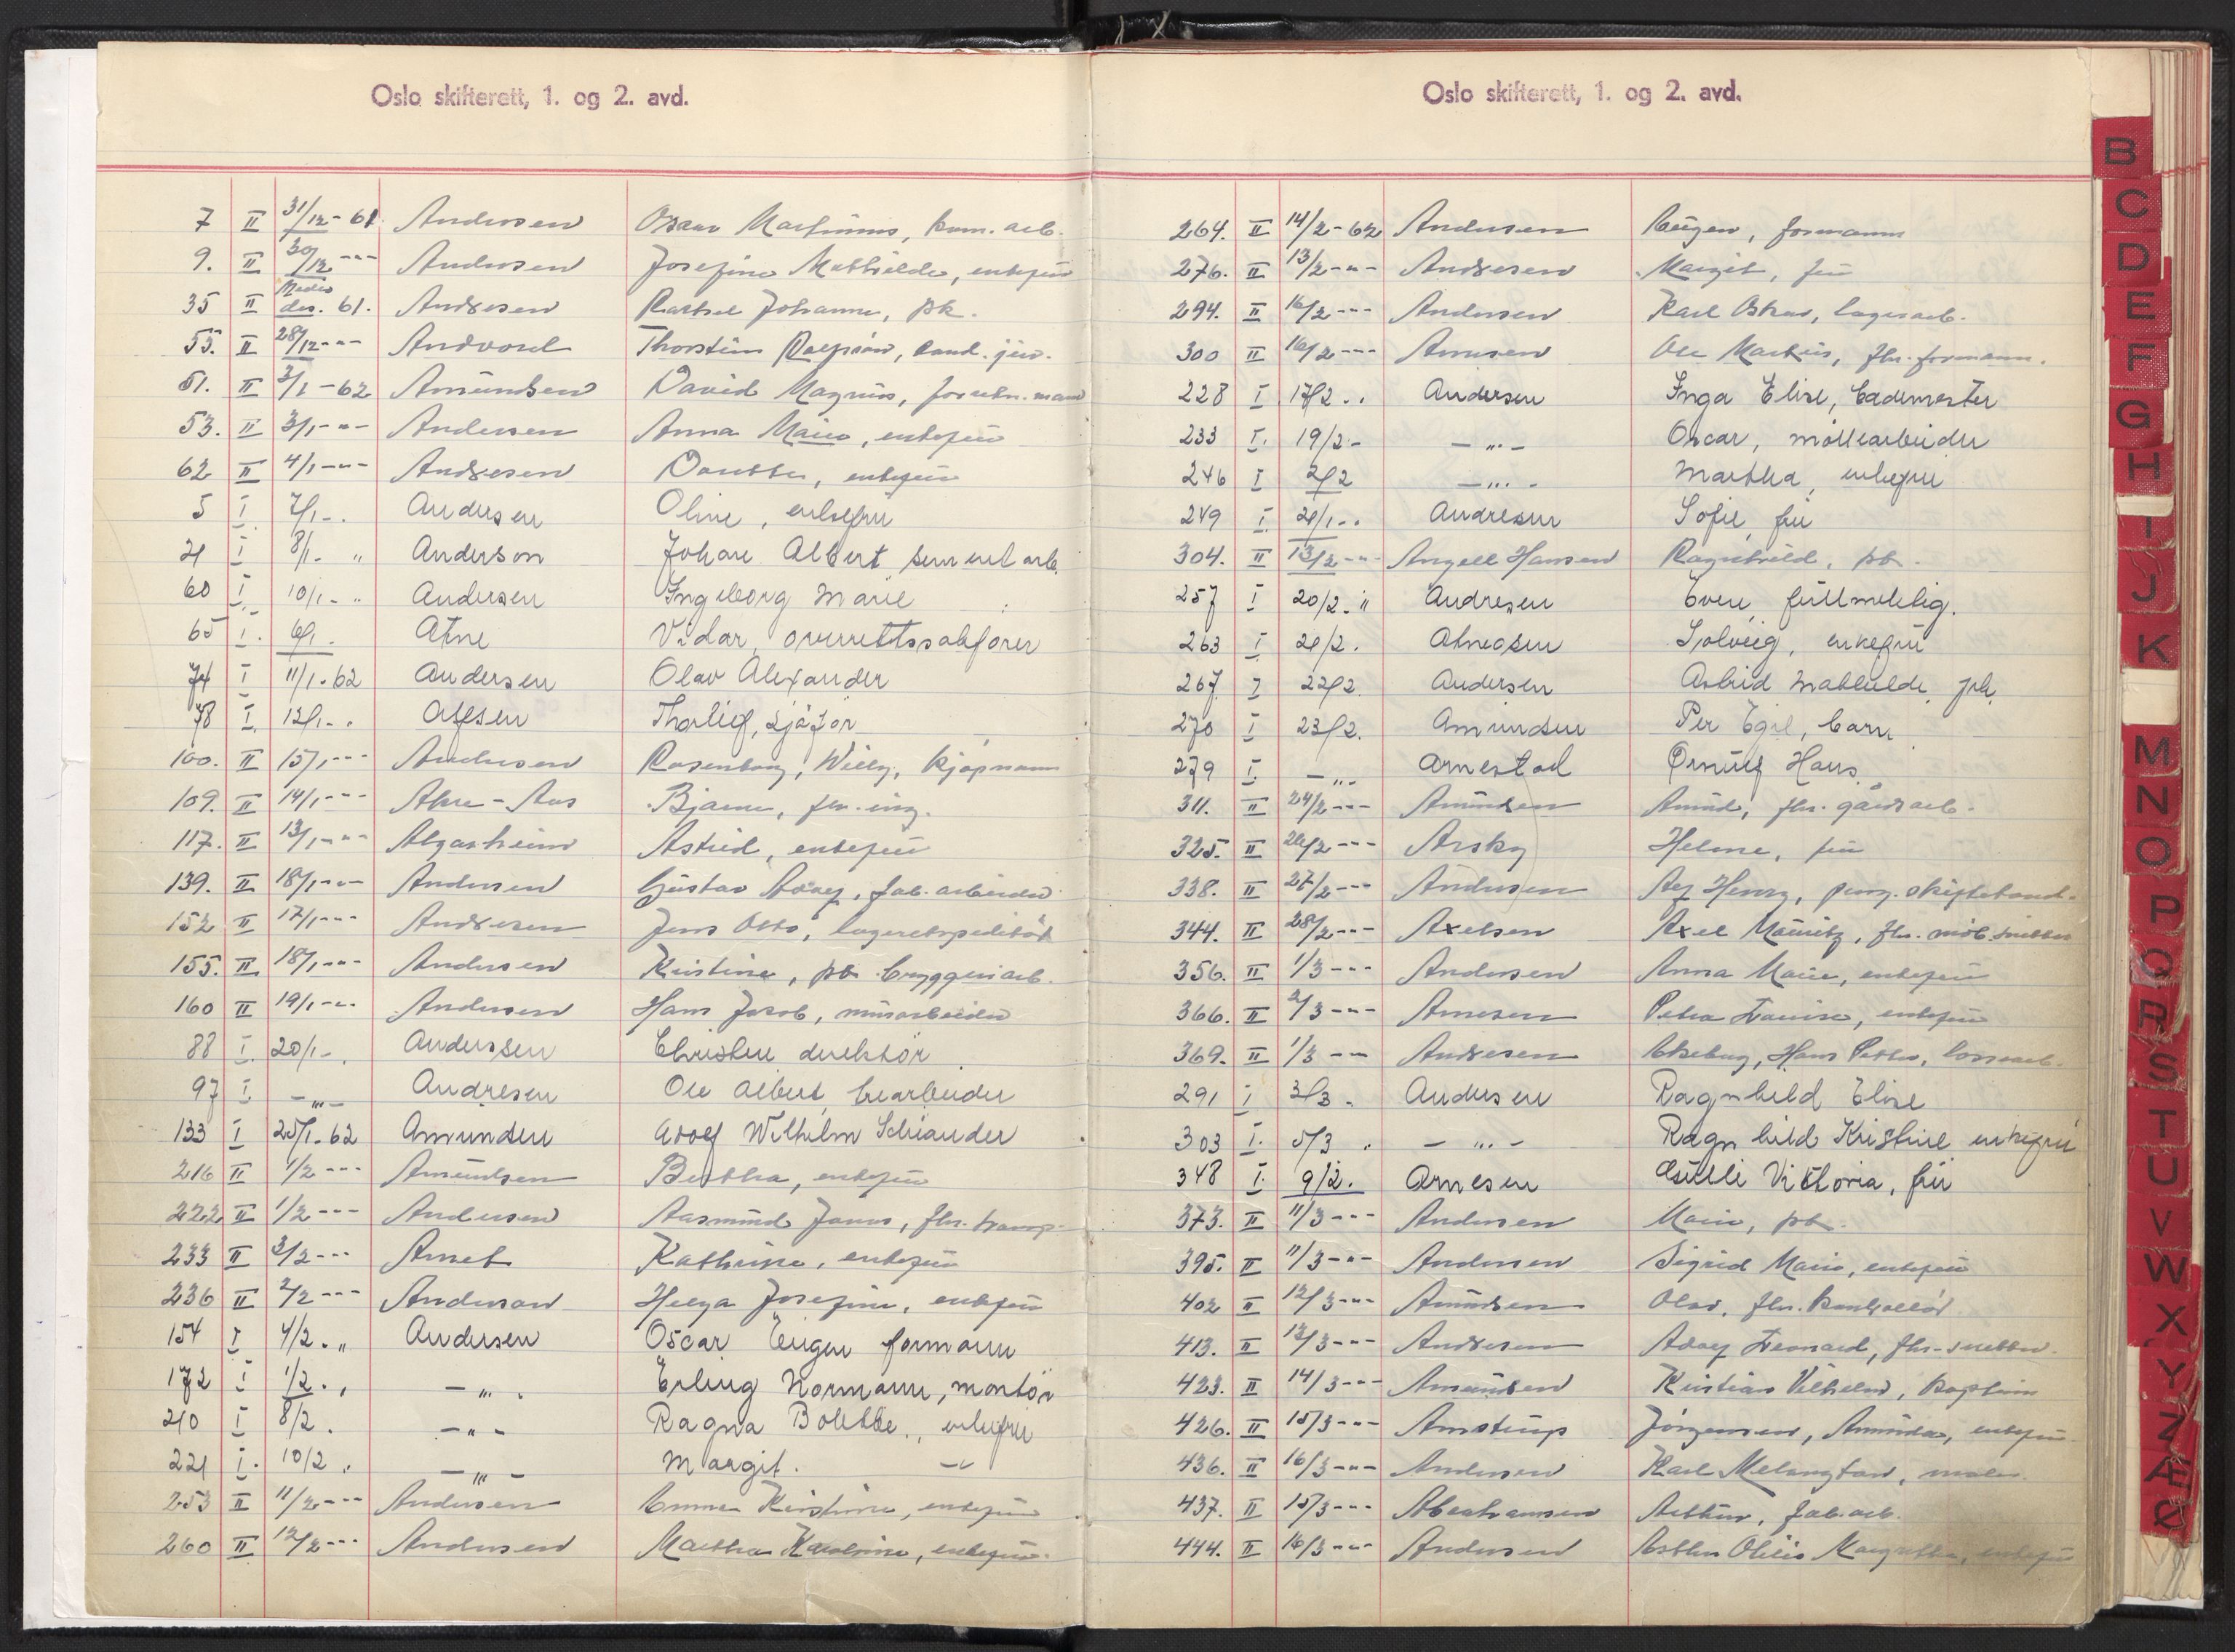 Oslo skifterett, 1. og 2. avd.
7 II 31/12-61 Andersen Oscar Martinius, kom. arb.
9. II 30/12 -"- Andersen Josefine Mathilde, enkefru
35 II Medio des. 61. Andresen Rachel Johanne, pk.
55. II 28/12 -"- Andvord Thorstein, cand. jur.
51. II 3/1-62 Amundsen David Magnus,
53. II 3/1 -"- Andersen Anna Marie, enkefru
62 II 4/1 -"- Andresen Dorthea, enkefru
5 I 7/1 -. Andersen Oline, enkefru
21 I 8/1 - " Anderson Johan Albert, sementarb.
60 I 10/1 - " Andersen Ingeborg Marie
65 I. 6/1 - Atne Vidar, overrettssakfører
74 I 11/1-62 Andersen Olav Alexander
78 I. 12/1 -. Alfsen Thorleif, sjåfør
100. II 15/1 -"- Andersen Rosenborg, Willy, kjøpmann
109. II 14/1 -"- Akre-Aas Bjarne, fhv. ing.
117. II 13/1 -"- Algarheim Astrid, enkefru
139. II 18/1 -"- Andersen Gustav Adolf, fab. arbeider
152 II 17/1 -"- Andresen Jens Otto, lagerekspeditør
155. II 18/1 -"- Andersen Kristine, pk. bryggeriarb.
160 II 19/1 -"- Andersen Hans Jacob, murarbeider
88 I. 20/1 -. Anderssen Christen direktør
97 I. -"- Andresen Ole Albert,
133 I 25/1-62 Amundsen Adolf Wilhelm Schiander
216 II 1/2 -"- Amundsen Berthea, enkefru
222 II 1/2 -"- Andersen Aasmund James, fhv.
233 II 3/2 -"- Arnet Kathrine, enkefru
236 II 2/2 -"- Anderson Helga Josefine, enkefru
154 I 4/2. " Andersen Oscar Eugen formann
172 I 1/2. " -"- Erling Normann, montør
210 I 8/2. -"- Ragna Bolette, enkefru
221 I. 10/2. -"- Margit. -"-
253 II 11/2 -"- Andersen Emma Kristine, enkefru
260 II 12/2 -"- Andersen Martha Karoline, enkefru.
Oslo skifterett, 1. og 2. avd.
264. II 14/2-62 Andersen Eugen, formann
276. II 13/2 -"- Andresen Margit, fru
294. II 16/2 -"- Andersen Karl Oskar, lagerarb.
300 II 16/2 -"- Arnesen Ole Markus, fhv. formann.
228 I 17/2.. Andersen Inga Elise, bademester
233 I. 19/2 - -"- Oscar, møllearbeider
246 I 2/2 -"- Martha, enkefru
249 I. 21/1 -. Andresen Sofie, fru
304. II 13/2 -"- Angell Hansen Ragnhild, pk.
257 I 20/2. " Andresen Even, fullmektig.
263 I 21/2. Solveig, enkefru
267 I 22/2. Andersen Astrid Mathilde, pk.
270 I 23/2. Amundsen Per Egil, barn
279 I. -"- Arnestad Ørnulf Hans
311. II 24/2 -"- Amundsen Amund, fhv. gårdsarb.
325. II 26/2 -"- Arsky Helene, fru
338. II 27/2 -"- Andersen Alf Henry,
344. II 28/2 -"- Axelsen Axel Mauritz, fhv. møb. snekker
356. II 1/3 -"- Andersen Anna Marie, enkefru
366. II 2/3 -"- Arnesen Petra Lovise, enkefru
369. II 1/3 -"- Andresen Akeberg, Hans Petter, lossearb.
291 I 3/3. Andersen Ragnhild Elise
303 I. 5/3. -"- Ragnhild Kristine enkefru
348 I. 9/2. Arnesen Viktoria, fru
373. II 11/3 -"- Andersen Marie, pk.
395. II 11/3 -"- Andersen Sigrid Marie, enkefru
402 II 12/3 -"- Amundsen Olav, fhv. kontrollør
413. II 13/3 -"- Andresen Adolf Leonard, fhv. snekker.
423. II 14/3 -"- Amundsen Kristian Vilhelm, kaptein
426. II 15/3 -"- Amstrup Jørgensen, Amunda, enkefru.
436. II 16/3 -"- Andersen Karl Melangton, maler.
437. II 15/3 -"- Abrahamsen Arthur, fab. arb.
444. II 16/3 -"- Andersen Margrethe, enkefru
B
C
D
E
F
G
H
I
J
K
M
N
O
P
Q
R
S
T
U
V
W
X
Y
Z
Æ
Ø